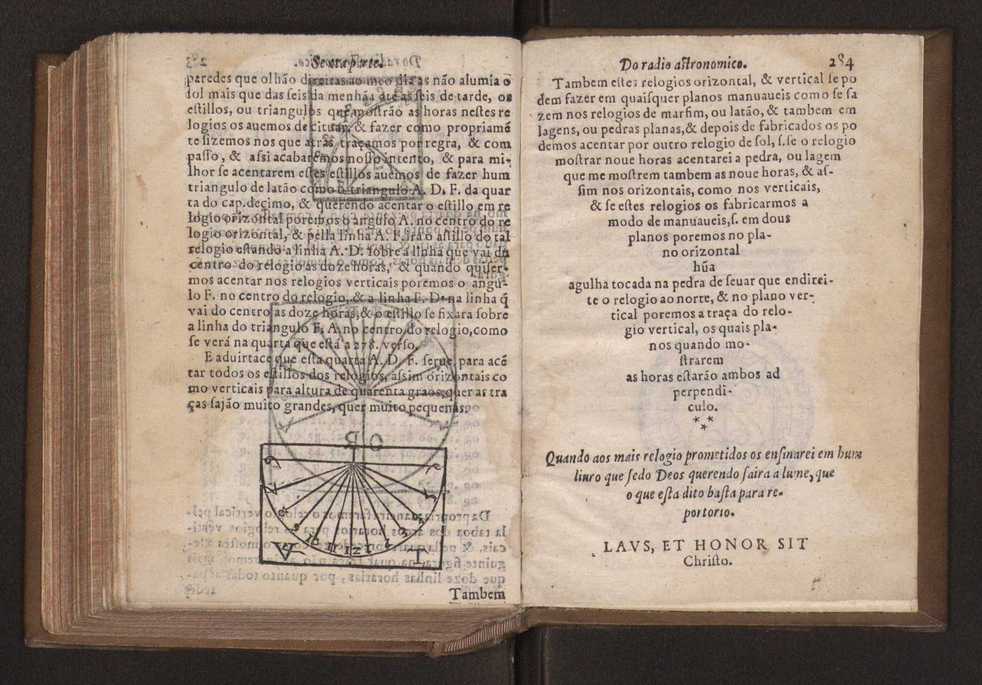 Sexta parte.
paredes que olhão direitas ao meo dia as não alumia o
sol mais que das seis da menhã atè as seis de tarde, os
estillos, ou triangulos que mostrão as horas nestes re
logios os auemos de cituar, & fazer como propriamē
te fizemos nos que atras traçamos por regra, & com
passo, & assi acabaremos nosso intento, & para mi-
lhor se acentarem estes estillos auemos de fazer hum
triangulo de latão como o triangulo A. D. F. da quar
ta do cap. decimo, & querendo acentar o estillo em re
logio orizontal poremos o angulo A. no centro do re
logio orizontal, & pella linha A. F. ira o astillo do tal
relogio estando a linha A. D. sobre a linha que vai do
centro do relogio as doze horas, & quando quiser-
mos acentar nos relogios verticais poremos o angu-
lo F. no centro do relogio, & a linha F. D. na linha q̃
vai do centro as doze horas, & o estillo se fixara sobre
a linha do triangulo F. A. no centro do relogio, como
se verá na quarta que está a 278. verso.
E aduirtace que esta quarta A. D. F. serue para acē
tar todos os estillos dos relogios, assim orizontais co
mo verticais para altura de quarenta graos, quer as tra
ças sajão muito grandes, quer muito pequenas.
Tambem
Do radio astronomico. 284
Tambem estes relogios orizontal, & vertical se po
dem fazer em quaisquer planos manuaueis como se fa
zem nos relogios de marfim, ou latão, & tambem em
lagens, ou pedras planas, & depois de fabricados os po
demos acentar por outro relogio de sol, s. se o relogio
mostrar noue horas acentarei a pedra, ou lagem
que me mostrem tambem as noue horas, & as-
sim nos orizontais, como nos verticais,
& se estes relogios os fabricarmos a
modo de manuaueis, s. em dous
planos poremos no pla-
no orizontal
hũa
agulha tocada na pedra de seuar que endirei-
te o relogio ao norte, & no plano ver-
tical poremos a traça do relo-
gio vertical, os quais pla-
nos quando mo-
strarem
as horas estarão ambos ad
perpendi-
culo.
Quando aos mais relogio prometidos os ensinarei em hum
liuro que sedo Deos querendo saira a lume, que
o que esta dito basta para re-
portorio.
LAVS, ET HONOR SIT
Christo.